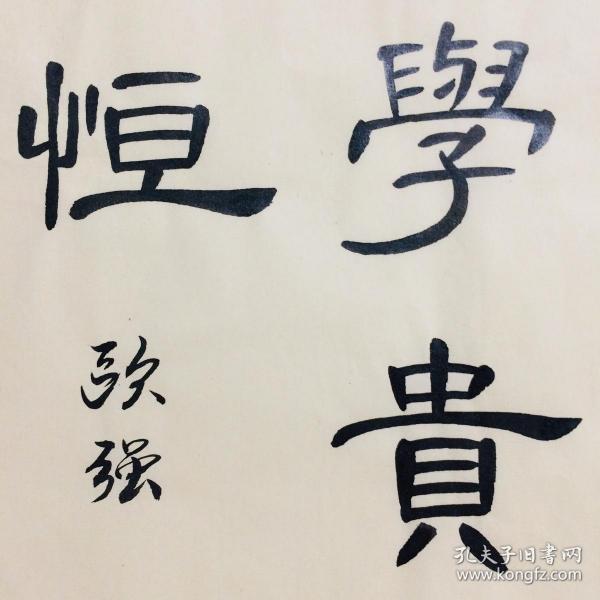 學貴
恒
欧强
孔夫子旧書网
www.kongfz.com